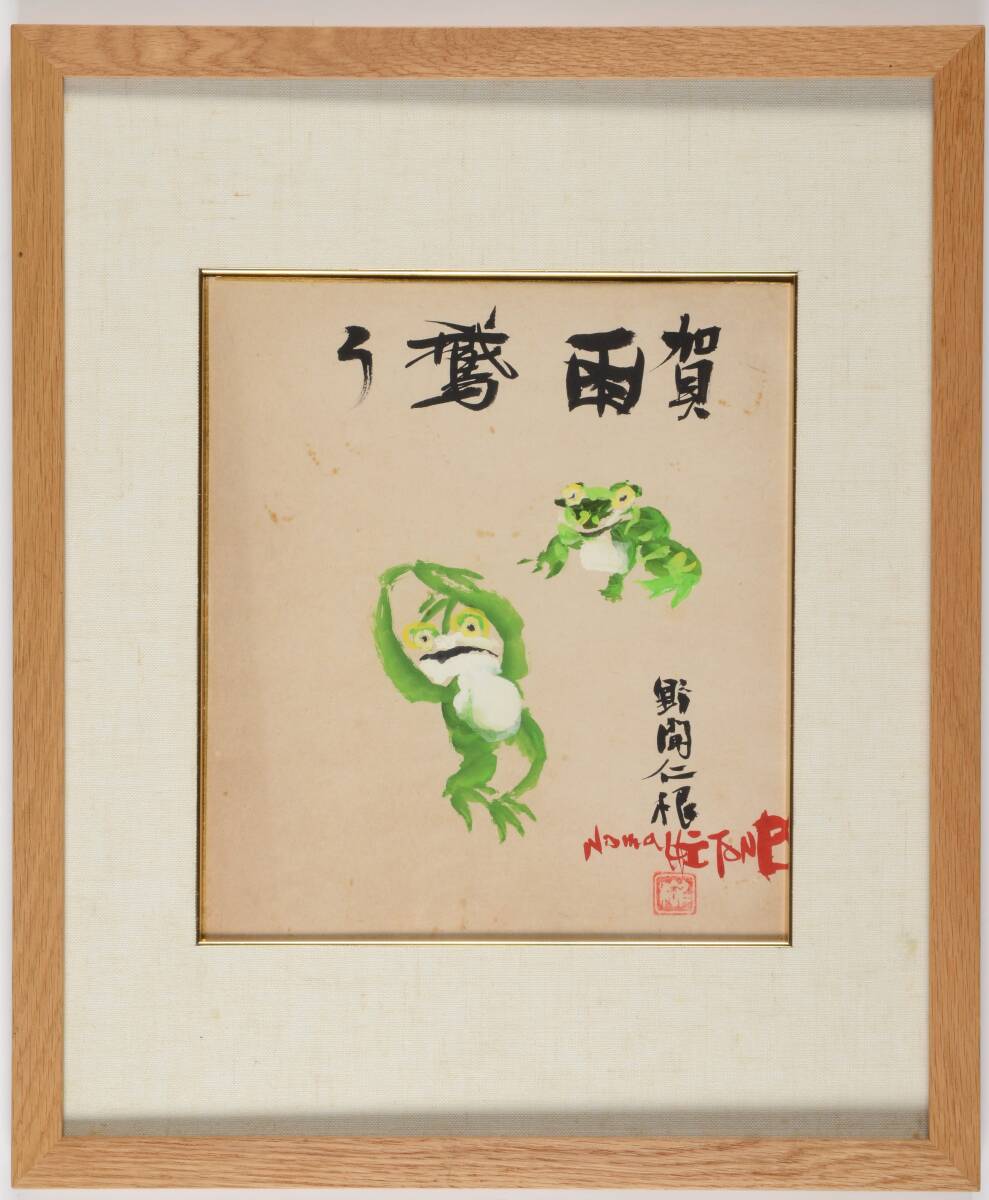 賀雨鵞う
野間仁根
Noma HITONE